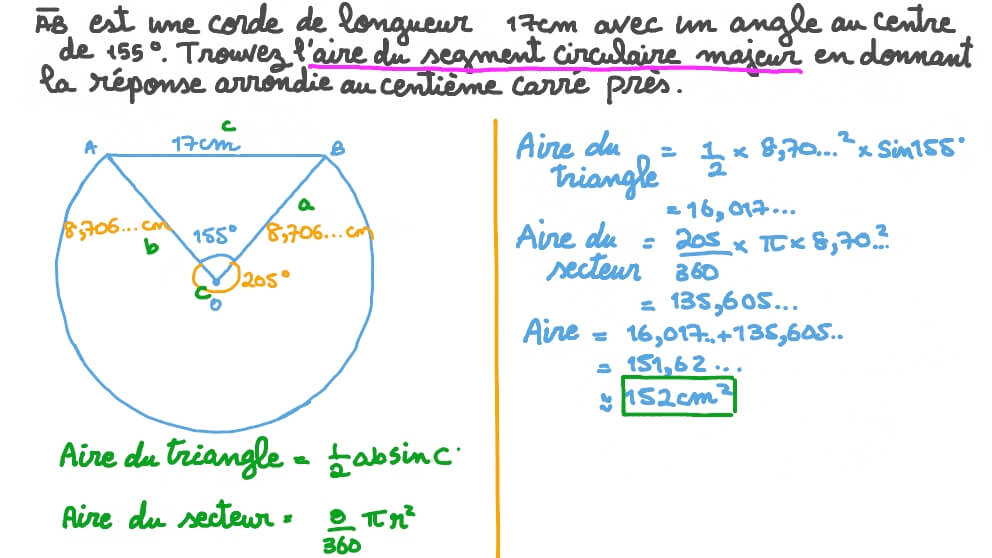 AB est une corde de longueur 17cm avec un angle au centre
de 155°. Trouvez l'aire du segment circulaire majeur en donnant
la réponse arrondie au centième carré près.
c
A 17cm B
a
8,706...cm 155° 8,706...cm
b
C 205°
O
Aire du triangle = 1/2 absinC
Aire du secteur = θ/360 πr²
Aire du triangle = 1/2 × 8,70...² × sin155°
= 16,017...
Aire du secteur = 205/360 × π × 8,70...²
= 135,605...
Aire = 16,017..+135,605..
= 151,62...
≈ 152cm²